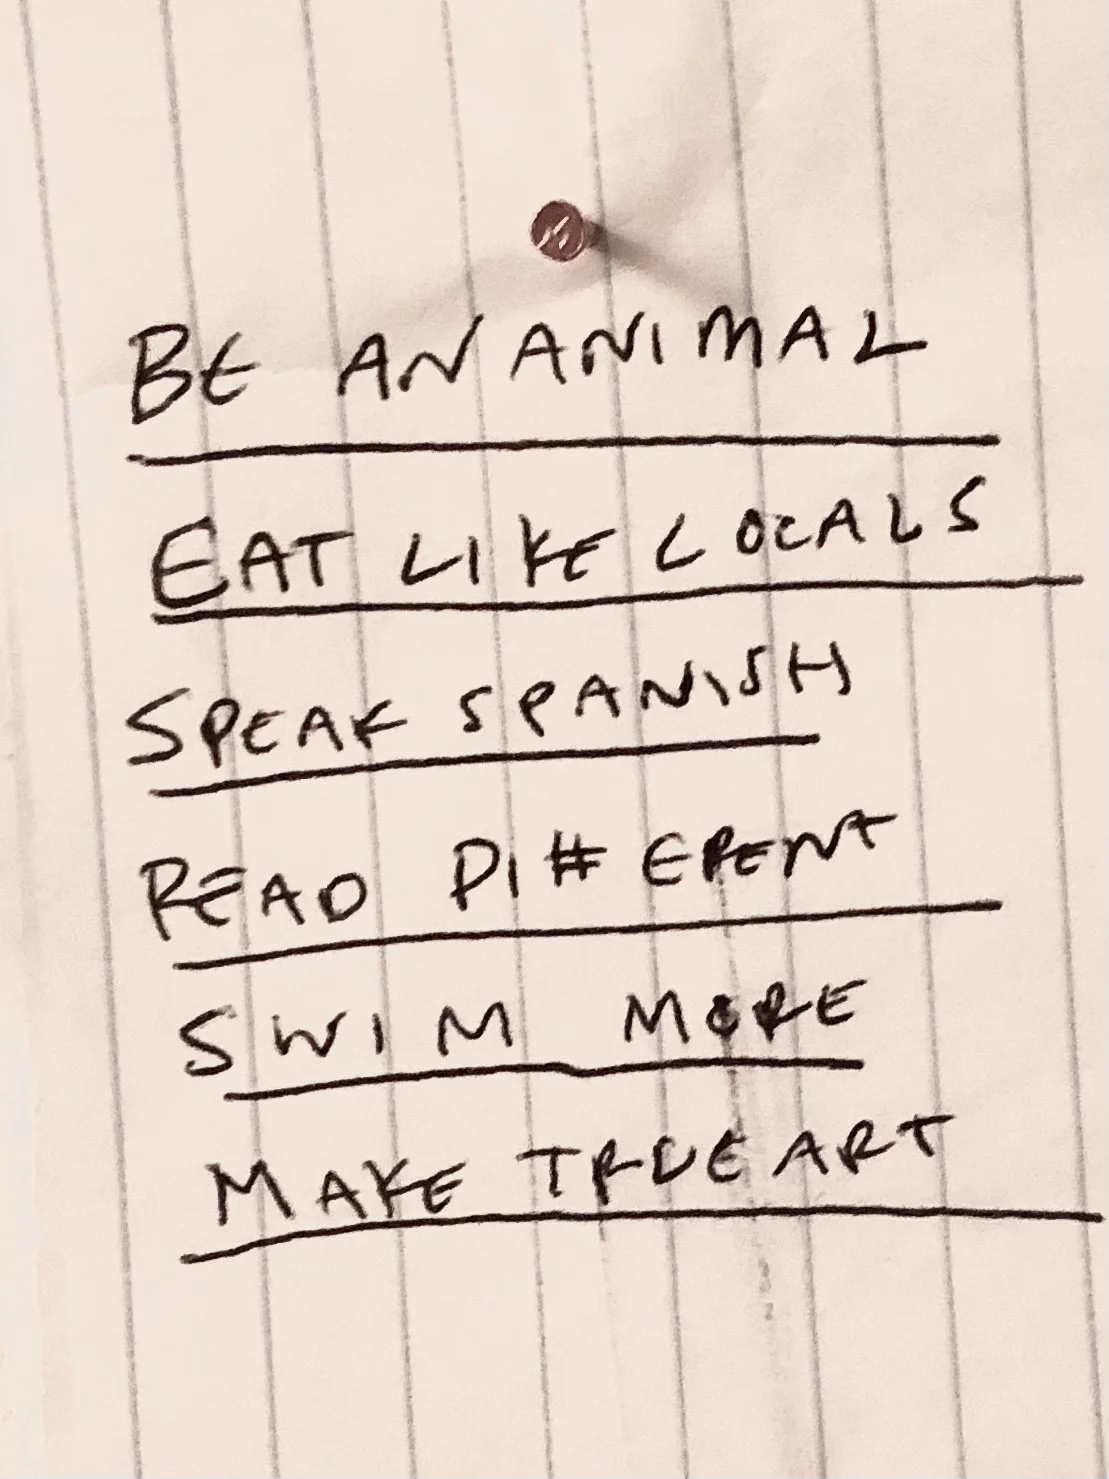 BE AN ANIMAL
EAT LIKE LOCALS
SPEAK SPANISH
READ DIFFERENT
SWIM MORE
MAKE TRUE ART